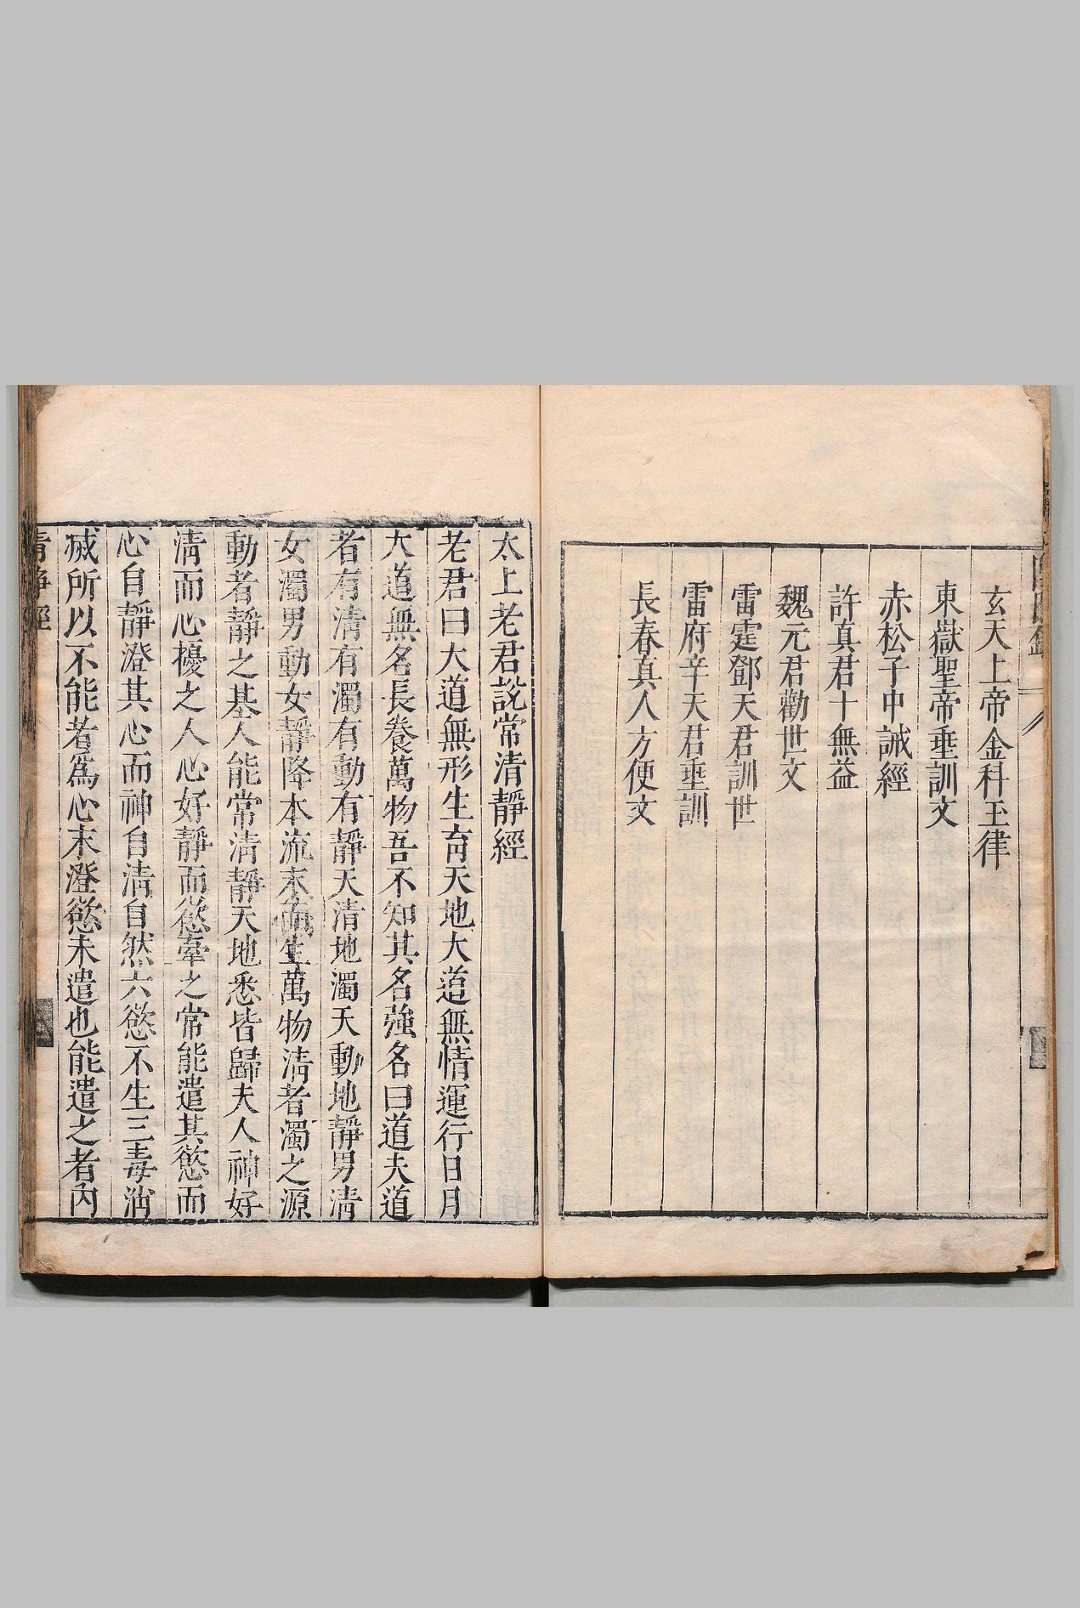 玄天上帝金科玉律
東嶽聖帝垂訓文
赤松子中誡經
許真君十無益
魏元君勸世文
雷霆鄧天君訓世
雷府辛天君垂訓
長春真人方便文
太上老君說常清靜經
老君曰大道無形生育天地大道無情運行日月
大道無名長養萬物吾不知其名強名曰道夫道
者有清有濁有動有靜天清地濁天動地靜男清
女濁男動女靜降本流末而生萬物清者濁之源
動者靜之基人能常清靜天地悉皆歸夫人神好
清而心擾之人心好靜而慾牽之常能遣其慾而
心自靜澄其心而神自清自然六慾不生三毒消
滅所以不能者爲心未澄慾未遣也能遣之者內
清淨經